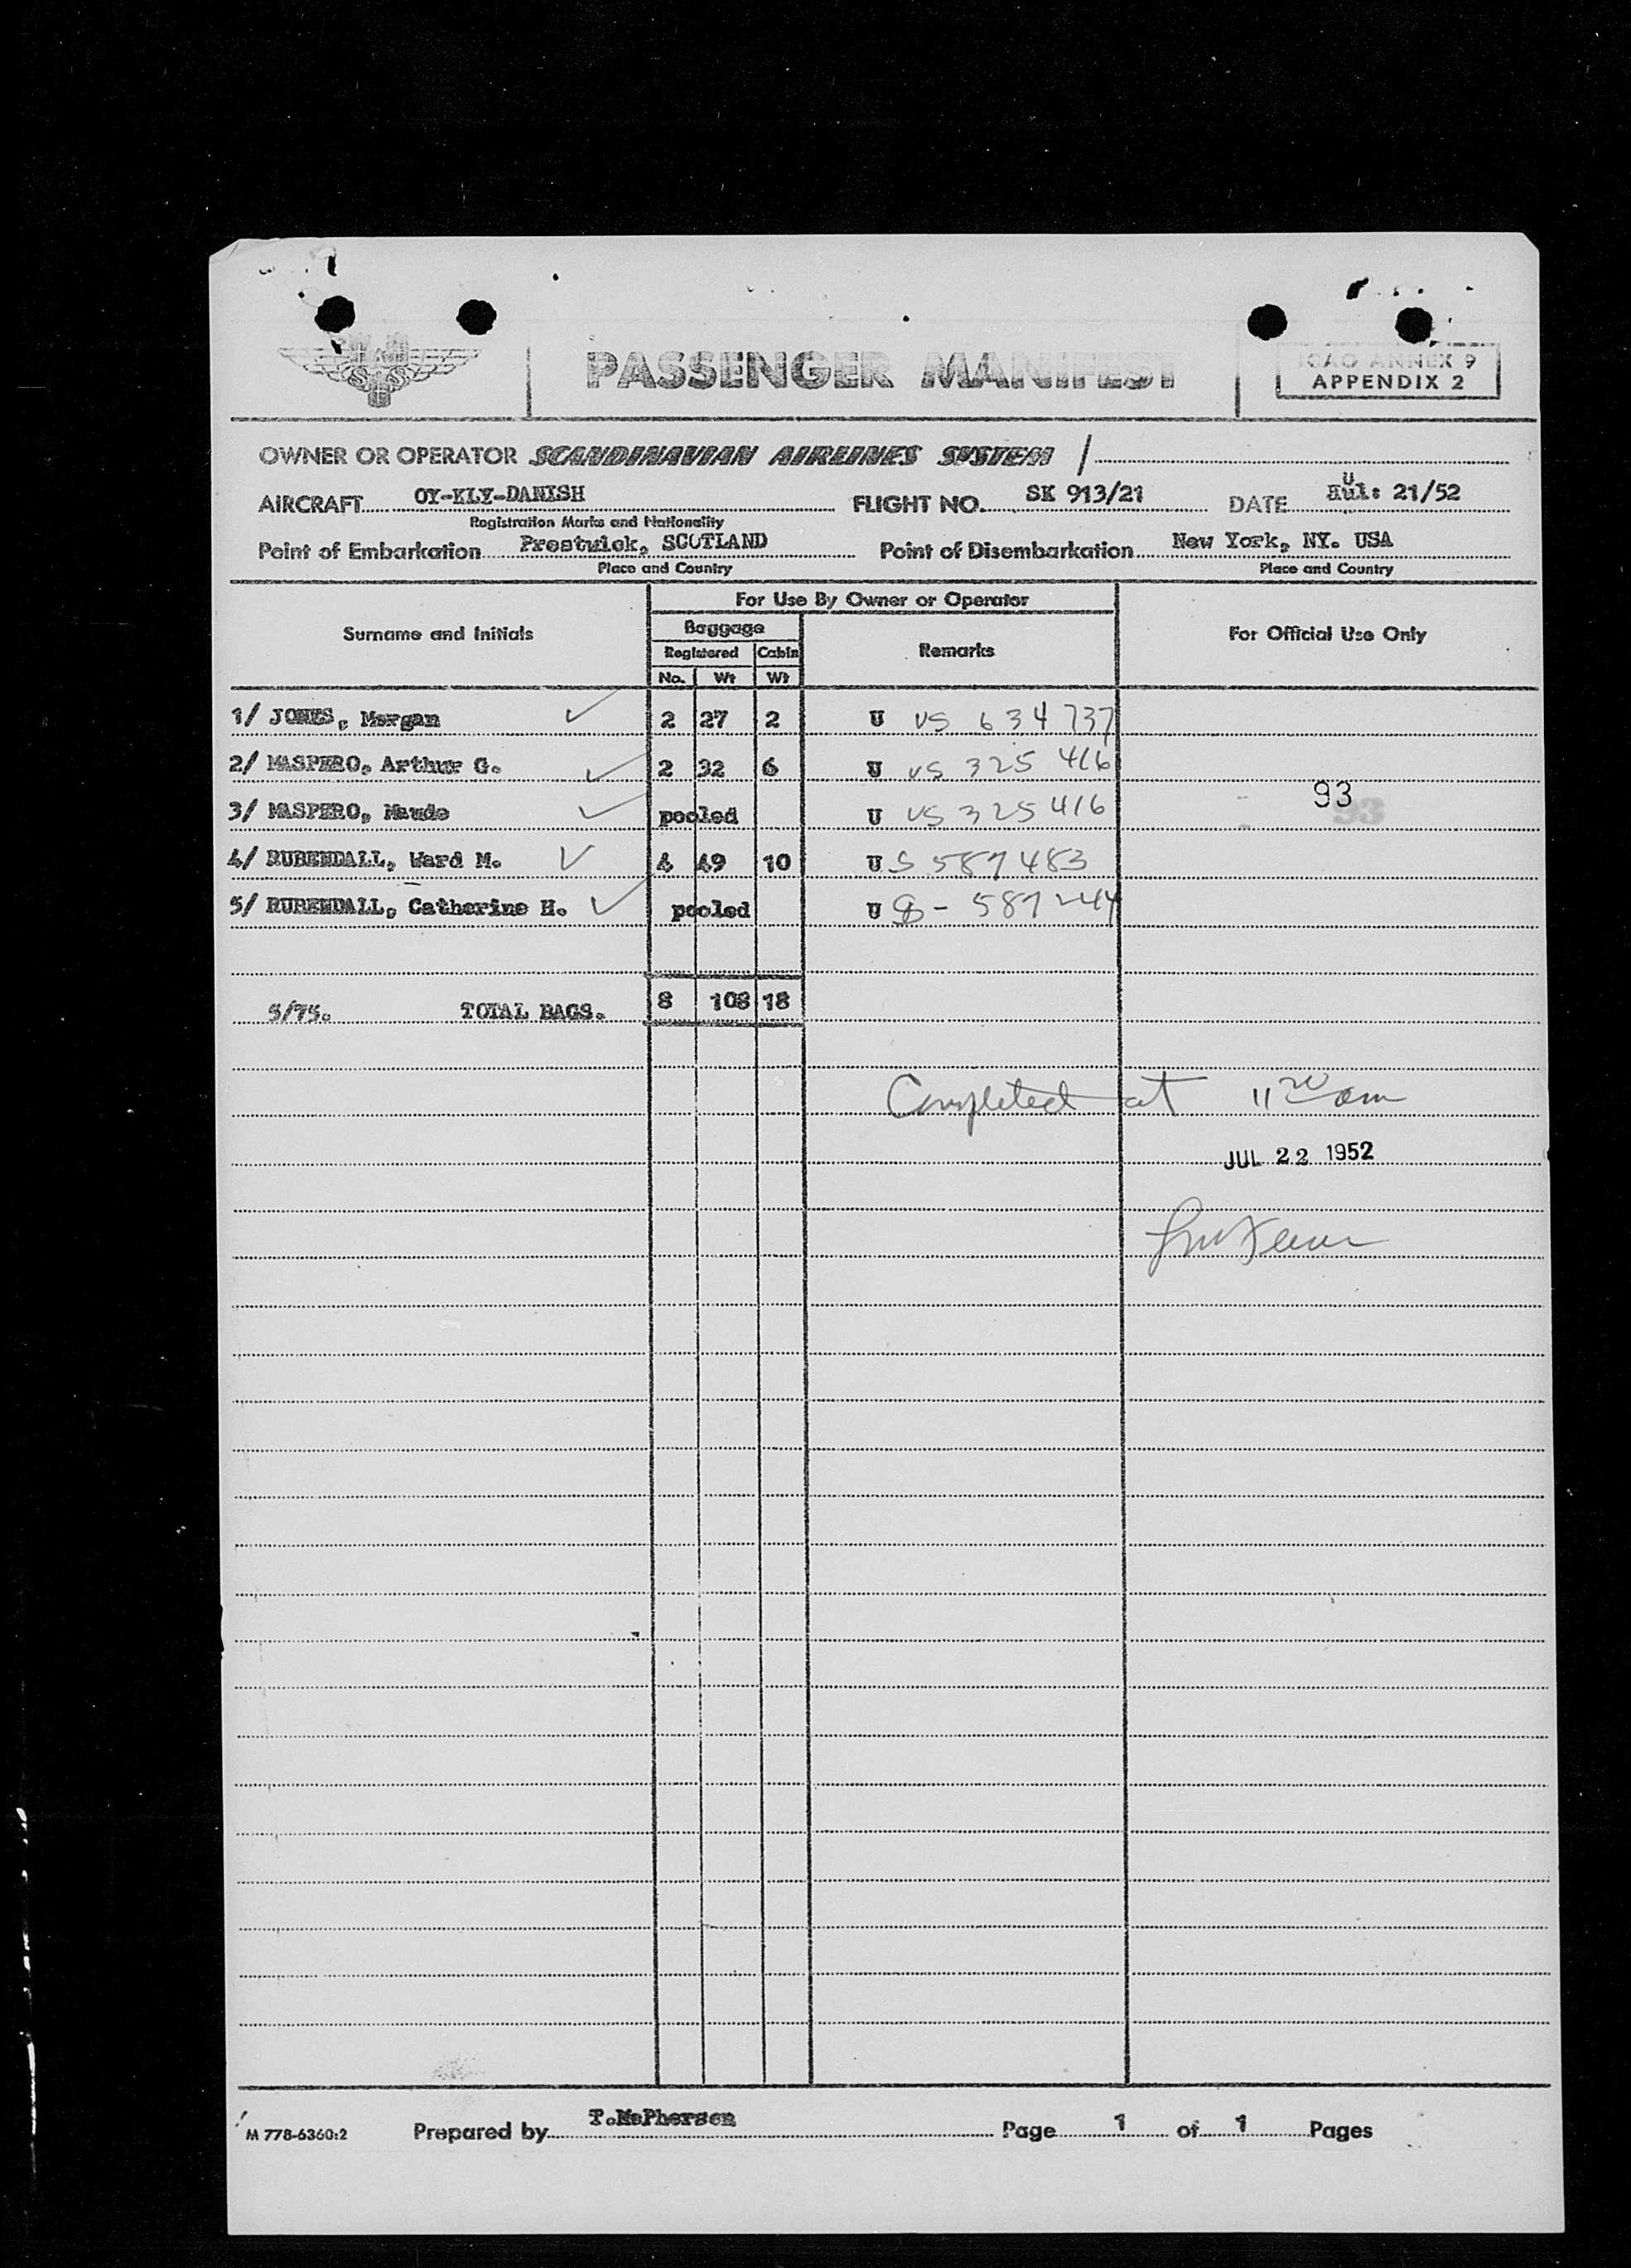 PASSENGER MANIFEST
ICAO ANNEX 9
APPENDIX 2
OWNER OR OPERATOR SCANDINAVIAN AIRLINES SYSTEM /
AIRCRAFT OY-KLY-DANISH FLIGHT NO. SK 913/21 DATE 21/52
Registration Marks and Nationality
Point of Embarkation Prestwick, SCOTLAND Point of Disembarkation New York, NY. USA
Place and Country Place and Country
For Use By Owner or Operator
Surname and Initials Baggage Remarks For Official Use Only
Registered Cabin
No. Wt Wt
1/ JONES, Morgan 2 27 2 U US 634737
2/ MASPERO, Arthur G. 2 32 6 U US 325416
3/ MASPERO, Maude pooled U US 325416
93
4/ RUBENDALL, Ward M. 4 49 10 U S 587483
5/ RUBENDALL, Catherine H. pooled U S - 587244
5/75. TOTAL BAGS. 8 108 18
Completed at 11 20 am
JUL 22 1952
M 778-6360:2 Prepared by T. McPherson Page 1 of 1 Pages